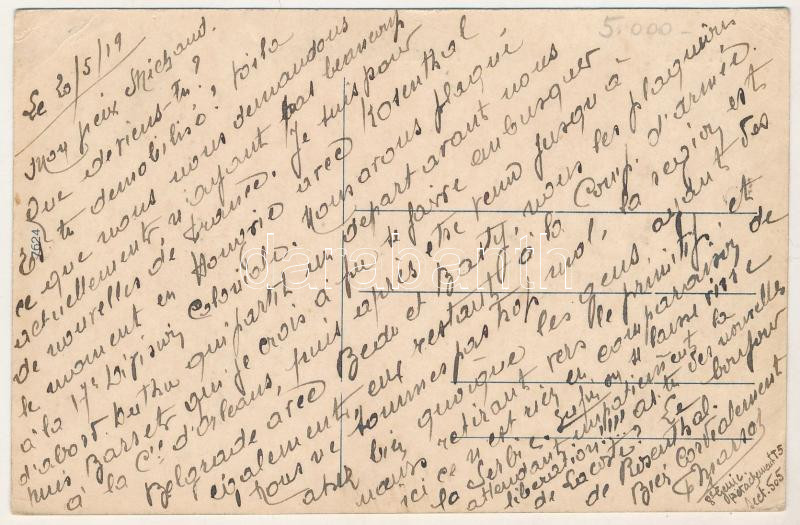 5.000-
Le 20/5/19
Mon vieux Michaud.
Que deviens-tu?
Es tu démobilisé? voila
ce que nous nous demandons
actuellement n'ayant pas beaucoup
de nouvelles de France. Je suis pour
le moment en Hongrie avec Rosenthal
à la 17e Division Coloniale. Nous avons plaqué
d'abord Duthu qui partit en départ avant nous
puis Barset qui je crois a pu se faire embusquer
à la Cie d'Orléans, puis après être venu jusqu'à
Belgrade avec Bede et Basty, nous les plaquèrent
également eux restant à la Comp. d'armée.
Nous ne sommes pas trop mal, la région est
assez bien quoique les gens aient des
mœurs retirant vers le primitif, et
ici ce n'est rien en comparaison de
la Serbie. Enfin on se laisse vivre
attendant impatiemment la
libération!!! as-tu des nouvelles
de Lacoste? Le bonjour
de Rosenthal.
Bien Cordialement
8e Génie
Détachement TS
Sect. 505
7624
darabanth